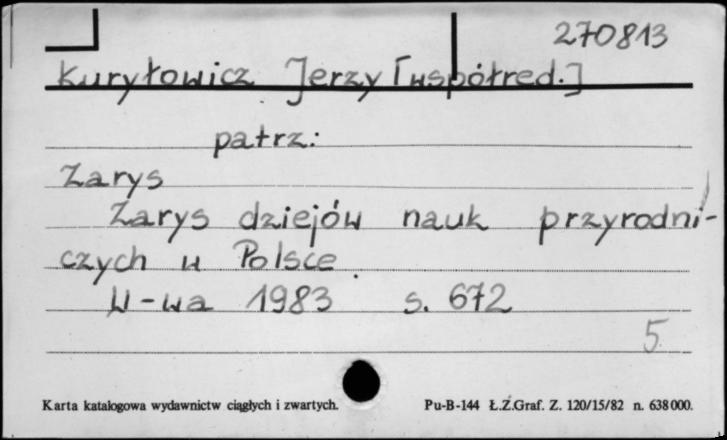 270813
Kuryłowicz Jerzy [współred.]
patrz:
Zarys
Zarys dziejów nauk przyrodni-
czych w Polsce.
W-wa 1983 s. 672
5
Karta katalogowa wydawnictw ciągłych i zwartych. Pu-B-144 Ł.Z.Graf. Z. 120/15/82 n. 638000.